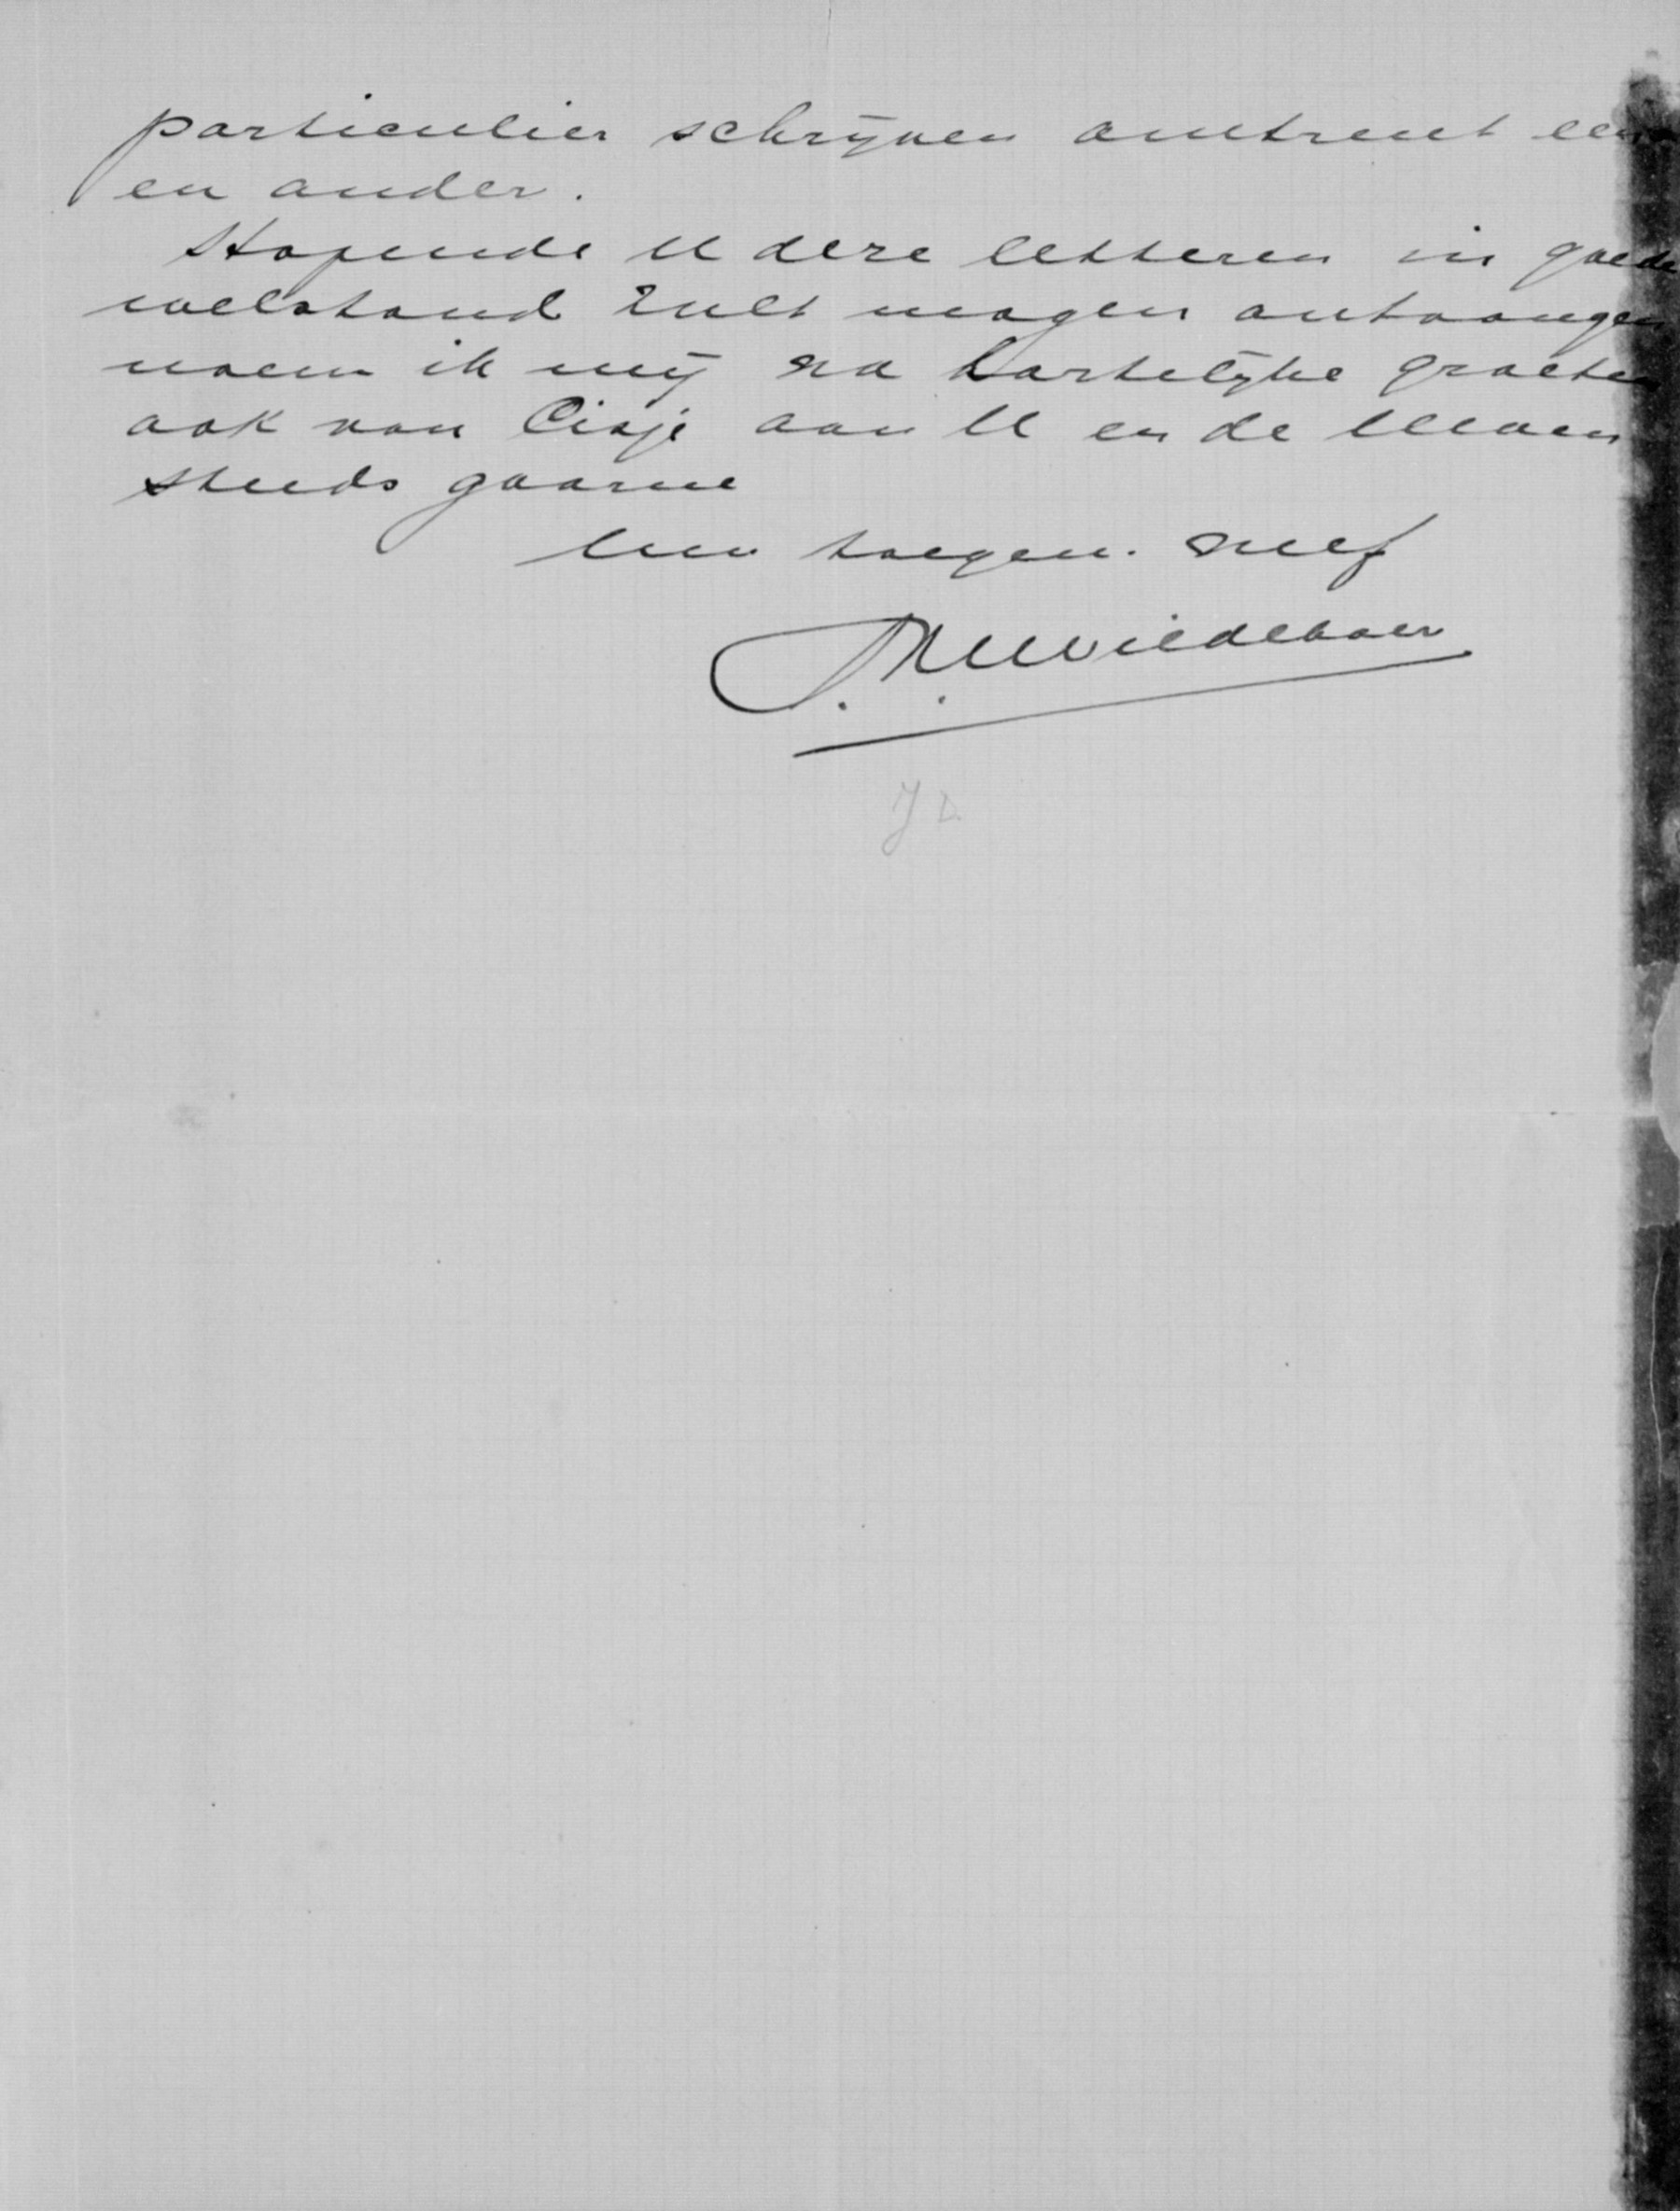 particulier schrijven omtrent een
en ander.
Hopende U deze letteren in goede
welstand zult mogen ontvangen
noem ik mij na hartelijke groeten
ook van Cisje aan U en de Uwen
steeds gaarne
Uw toegen. neef